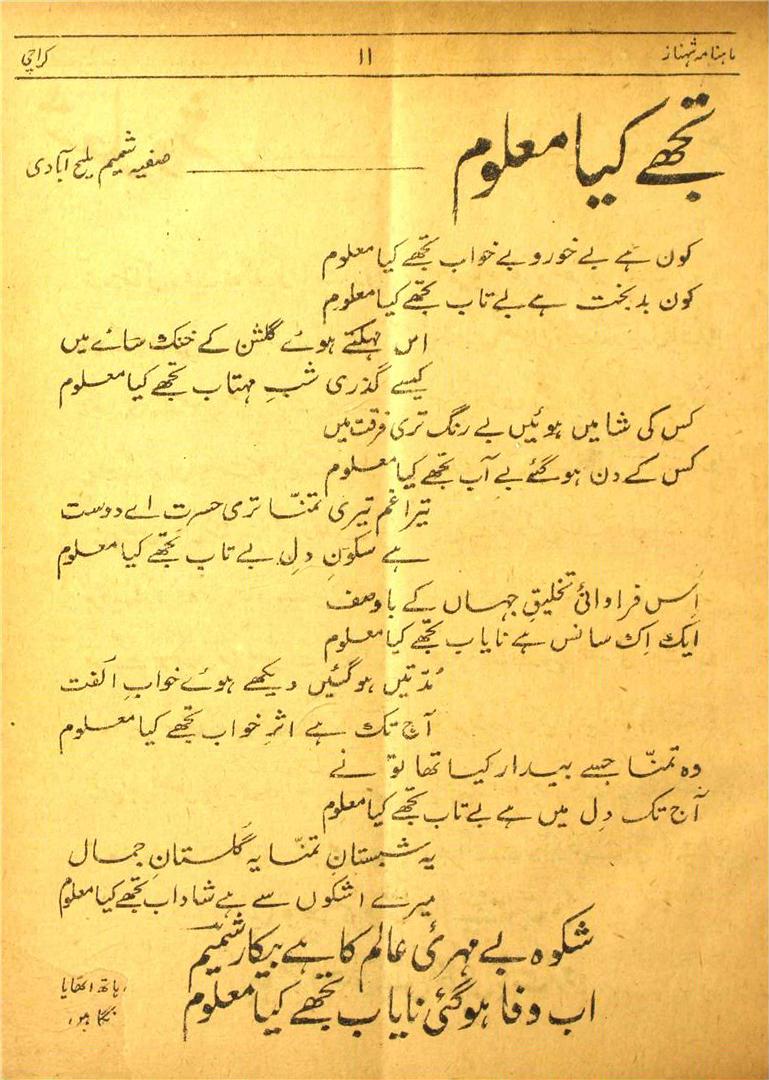 ماہنامہ شہناز ۱۱ کراچی
تجھے کیا معلوم
صفیہ شمیم ملیح آبادی
کون ہے بے خور و بے خواب تجھے کیا معلوم
کون بد بخت ہے بے تاب تجھے کیا معلوم
اس مہکتے ہوئے گلشن کے خنک سائے میں
کیسے گذری شبِ مہتاب تجھے کیا معلوم
کس کی شامیں ہوئیں بے رنگ تری فرقت میں
کس کے دن ہو گئے بے آب تجھے کیا معلوم
تیرا غم تیری تمنّا تری حسرت اے دوست
ہے سکونِ دِل بے تاب تجھے کیا معلوم
اِس فراوانئ تخلیقِ جہاں کے با وصف
ایک اِک سانس ہے نایاب تجھے کیا معلوم
مُدّتیں ہو گئیں دیکھے ہوئے خوابِ اُلفت
آج تک ہے اثرِ خواب تجھے کیا معلوم
وہ تمنّا جسے بیدار کیا تھا تو نے
آج تک دِل میں ہے بے تاب تجھے کیا معلوم
یہ شبستانِ تمنّا یہ گلستانِ جمال
میرے اشکوں سے ہے شاداب تجھے کیا معلوم
شکوہ بے مہرئ عالم کا ہے بیکار شمیمؔ
اب وفا ہو گئی نایاب تجھے کیا معلوم
ہاتھ اٹھایا
نگاہیں